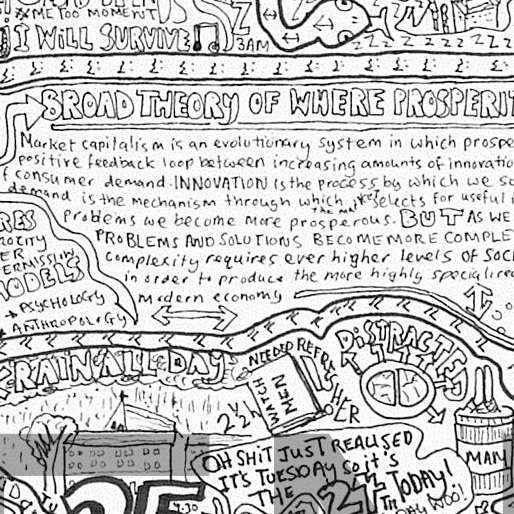 #ME TOO MOMENT
I WILL SURVIVE
3AM
Z Z Z Z Z Z Z Z Z
BROAD THEORY OF WHERE PROSPERIT
Market capitalism is an evolutionary system in which prospe
positive feedback loop between increasing amounts of innovatio
f consumer demand. INNOVATION is the process by which we so
demand is the mechanism through which the market selects for useful i
problems we become more prosperous. BUT AS WE
PROBLEMS AND SOLUTIONS BECOME MORE COMPLE
complexity requires ever higher levels of soc
in order to produce the more highly specialised
modern economy
RES
ROCITY
ER
ERMISSIV
MODELS
PSYCHOLOGY
ANTHROPOLOGY
RAIN ALL DAY
NEEDED REFRESHER
WATCHMEN
2½h
DISTRACTED
MAN
OH SHIT JUST REALISED
IT'S TUESDAY so it's
THE 27th TODAY!
DAY WOO!
25
4:30